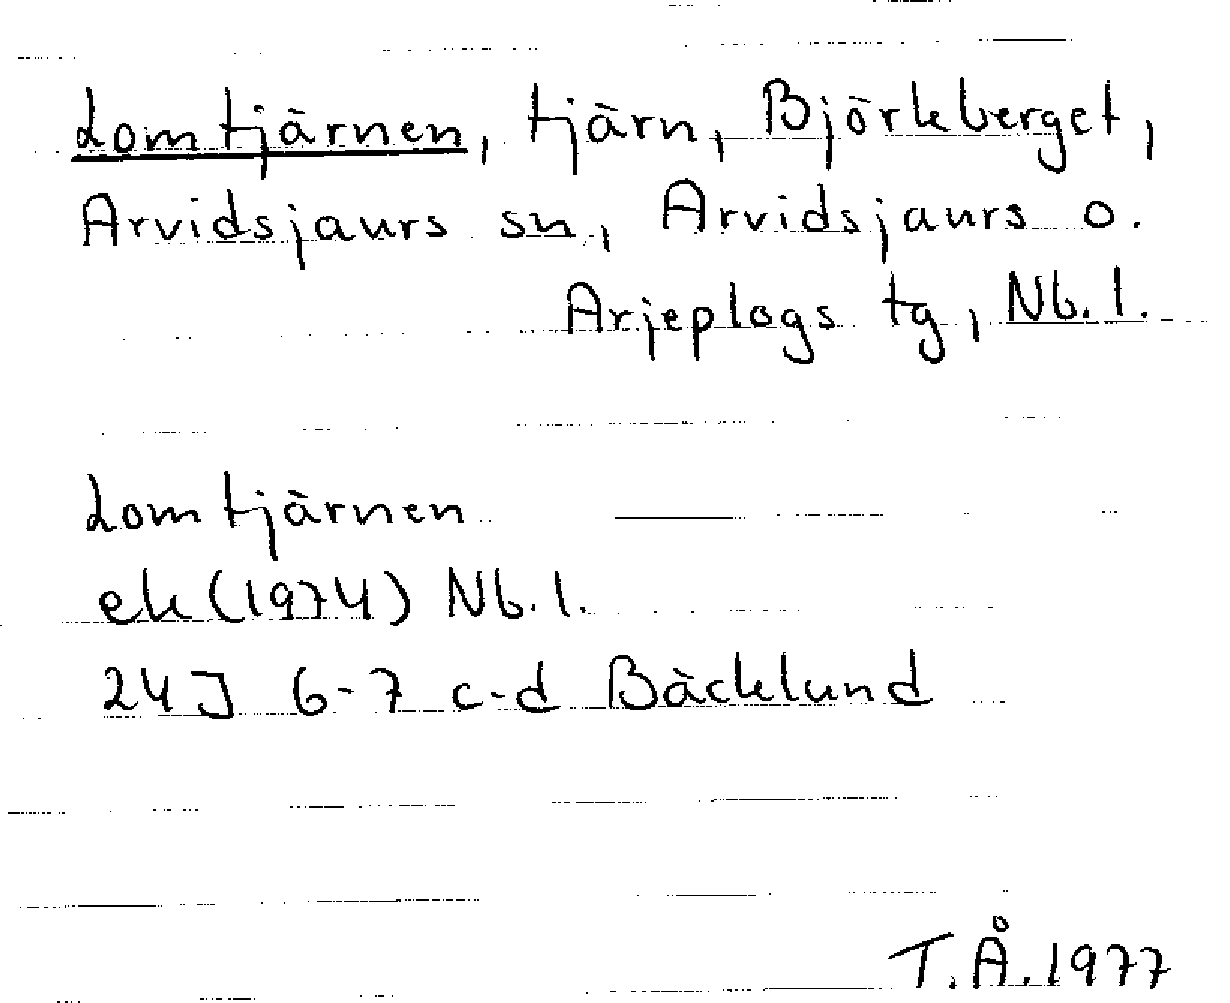 Lomtjärnen, tjärn, Björkberget,
Arvidsjaurs sn, Arvidsjaurs o.
Arjeplogs tg, Nb. l.
Lomtjärnen
ek (1974) Nb. l.
24J 6-7 c-d Bäcklund
T.Å. 1977